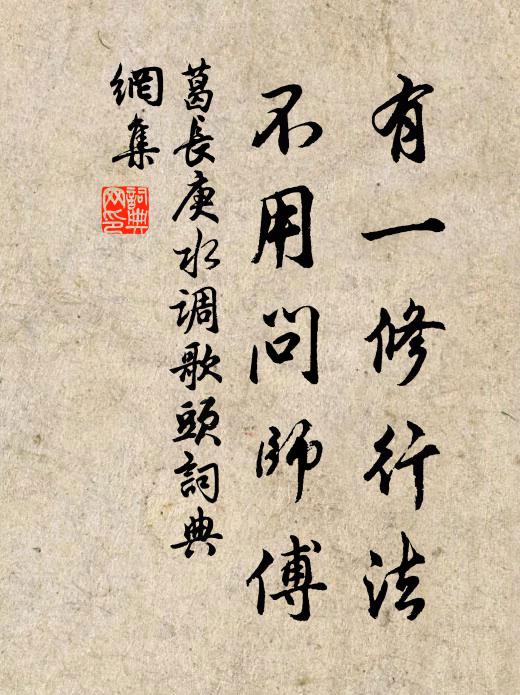 有一修行法
不用問師傅
葛長庚水調歌頭詞典
網集
詞典
网印